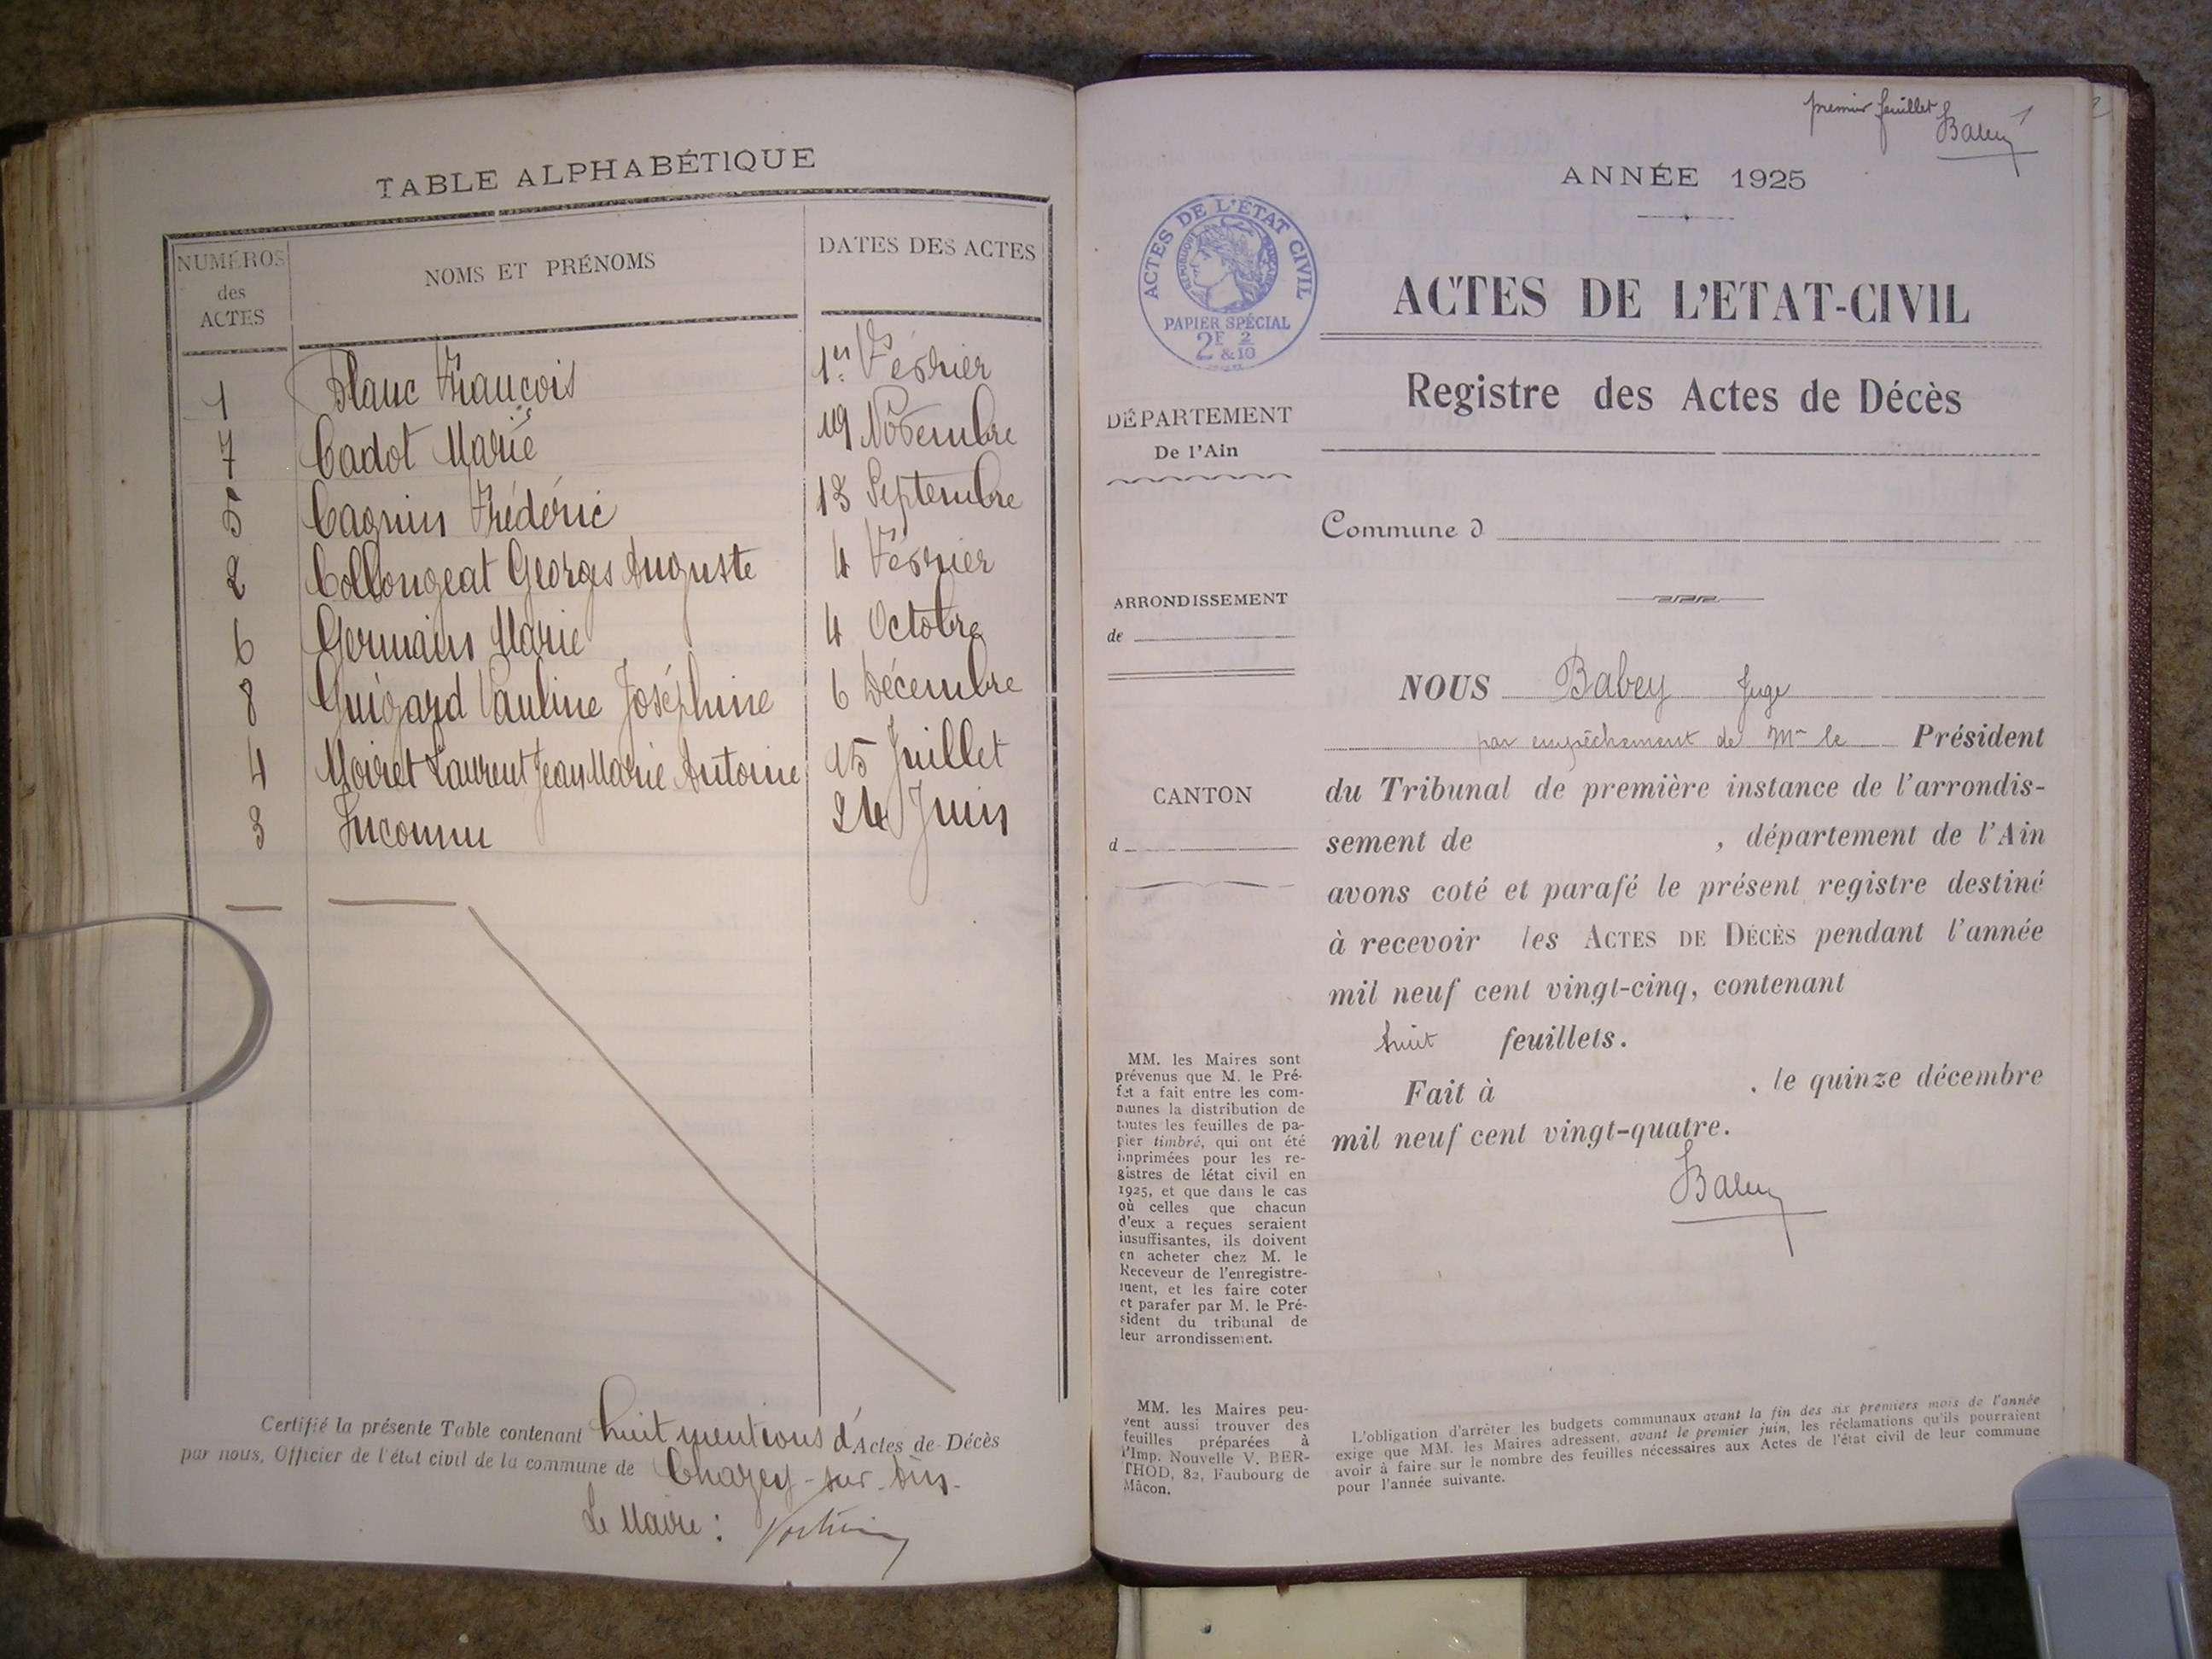 TABLE ALPHABÉTIQUE
NUMÉROS
des
ACTES
NOMS ET PRÉNOMS
DATES DES ACTES
1 Blanc François 1er Février
7 Cadot Marie 19 Novembre
5 Cagnin Frédéric 13 Septembre
2 Collongeat Georges Auguste 4 Février
6 Germain Marie 4 Octobre
8 Guigard Pauline Joséphine 6 Décembre
4 Moiret Laurent Jean Marie Antoine 15 Juillet
3 Inconnu 24 Juin
Certifié la présente Table contenant huit mentions d'Actes de Décès
par nous, Officier de l'état civil de la commune de Chazey-sur-Ain.
Le Maire :
premier feuillet 1
Babey
ANNÉE 1925
ACTES DE L'ÉTAT CIVIL
RÉPUBLIQUE FRANÇAISE
PAPIER SPÉCIAL
2F 2
&10
ACTES DE L'ETAT-CIVIL
Registre des Actes de Décès
DÉPARTEMENT
De l'Ain
Commune d
ARRONDISSEMENT
de
CANTON
d
NOUS Babey Juge
par empêchement de Mr le Président
du Tribunal de première instance de l'arrondis-
sement de , département de l'Ain
avons coté et parafé le présent registre destiné
à recevoir les ACTES DE DÉCÈS pendant l'année
mil neuf cent vingt-cinq, contenant
huit feuillets.
Fait à , le quinze décembre
mil neuf cent vingt-quatre.
Babey
MM. les Maires sont
prévenus que M. le Pré-
fet a fait entre les com-
munes la distribution de
toutes les feuilles de pa-
pier timbré, qui ont été
imprimées pour les re-
gistres de létat civil en
1925, et que dans le cas
où celles que chacun
d'eux a reçues seraient
insuffisantes, ils doivent
en acheter chez M. le
Receveur de l'enregistre-
ment, et les faire coter
et parafer par M. le Pré-
sident du tribunal de
leur arrondissement.
MM. les Maires peu-
vent aussi trouver des
feuilles préparées à
l'Imp. Nouvelle V. BER-
THOD, 82, Faubourg de
Mâcon.
L'obligation d'arrêter les budgets communaux avant la fin des six premiers mois de l'année
exige que MM. les Maires adressent, avant le premier juin, les réclamations qu'ils pourraient
avoir à faire sur le nombre des feuilles nécessaires aux Actes de l'état civil de leur commune
pour l'année suivante.